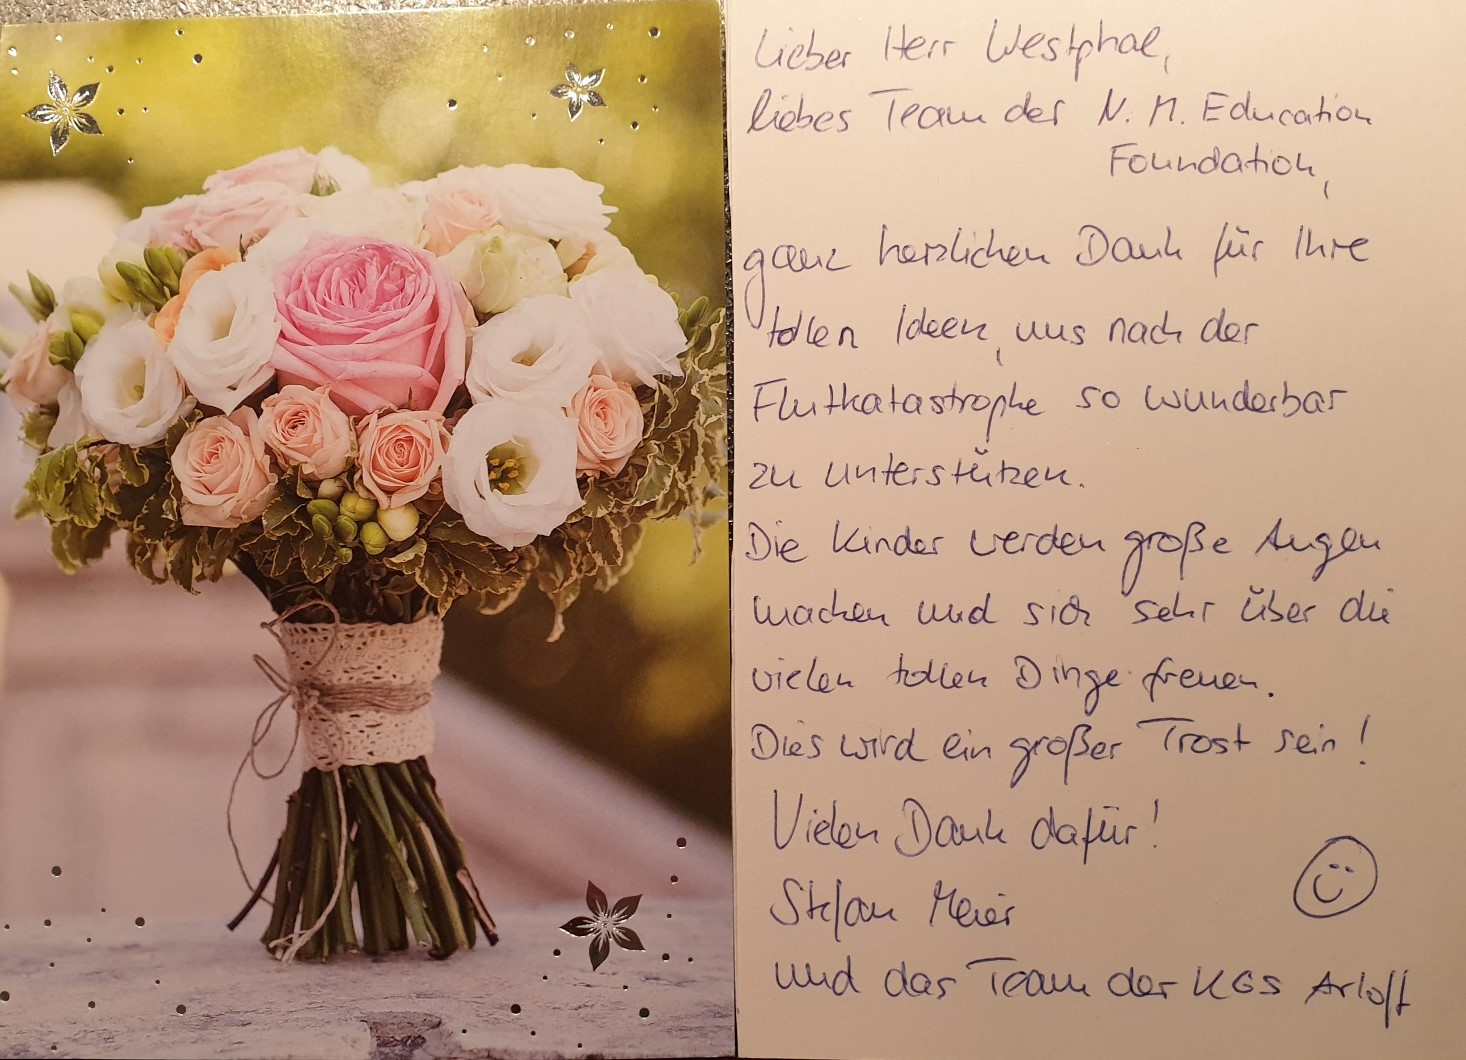 Lieber Herr Westphal,
liebes Team der N. M. Education
Foundation,
ganz herzlichen Dank für Ihre
tollen Ideen, uns nach der
Flutkatastrophe so wunderbar
zu unterstützen.
Die Kinder werden große Augen
machen und sich sehr über die
vielen tollen Dinge freuen.
Dies wird ein großer Trost sein!
Vielen Dank dafür!
Stefan Meier
und das Team der KGS Arloff